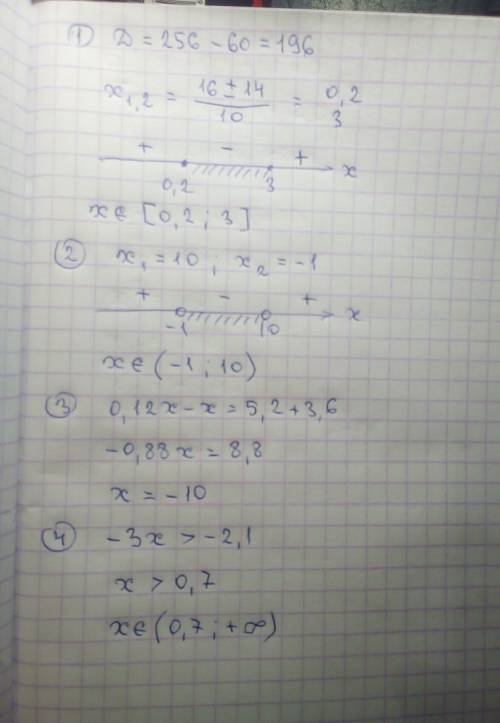 ① D = 256 - 60 = 196
x₁,₂ = (16 ± 14)/10 = 0,2
3
+ - +
0,2 3 x
x ∈ [0,2 ; 3]
② x₁ = 10 ; x₂ = -1
+ - +
-1 10 x
x ∈ (-1 ; 10)
③ 0,12x - x = 5,2 + 3,6
-0,88x = 8,8
x = -10
④ -3x > -2,1
x > 0,7
x ∈ (0,7 ; +∞)